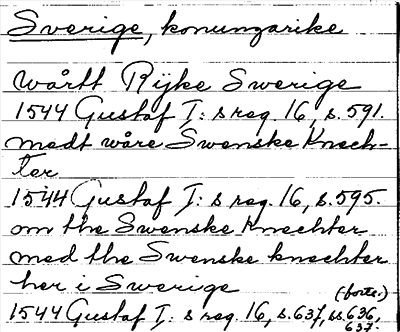 Sverige, konungarike
wårtt Rijke Swerige
1544 Gustaf I: s reg. 16, s. 591.
medt våre Swenske Knech-
ter
1544 Gustaf I: s reg. 16, s. 595.
om the Swenske Knechter
med the Swenske knechter
her i Swerige
(forts.)
1544 Gustaf I: s reg. 16, s. 637, ss. 636,
637.